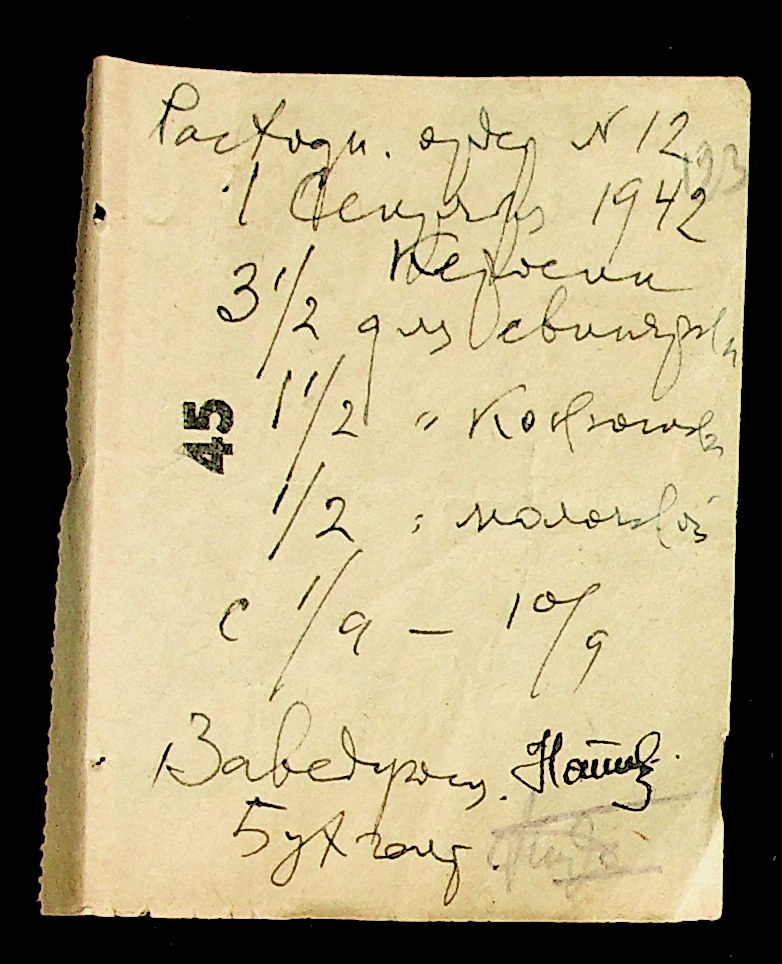 Расходн. ордер N 12
123
1 Сентября 1942
Керосин
3 1/2 для свинярки
1 1/2 " Конюшня
45
1/2 " молочной
с 1/9 – 10/9
Заведующ.
Бухгалт.